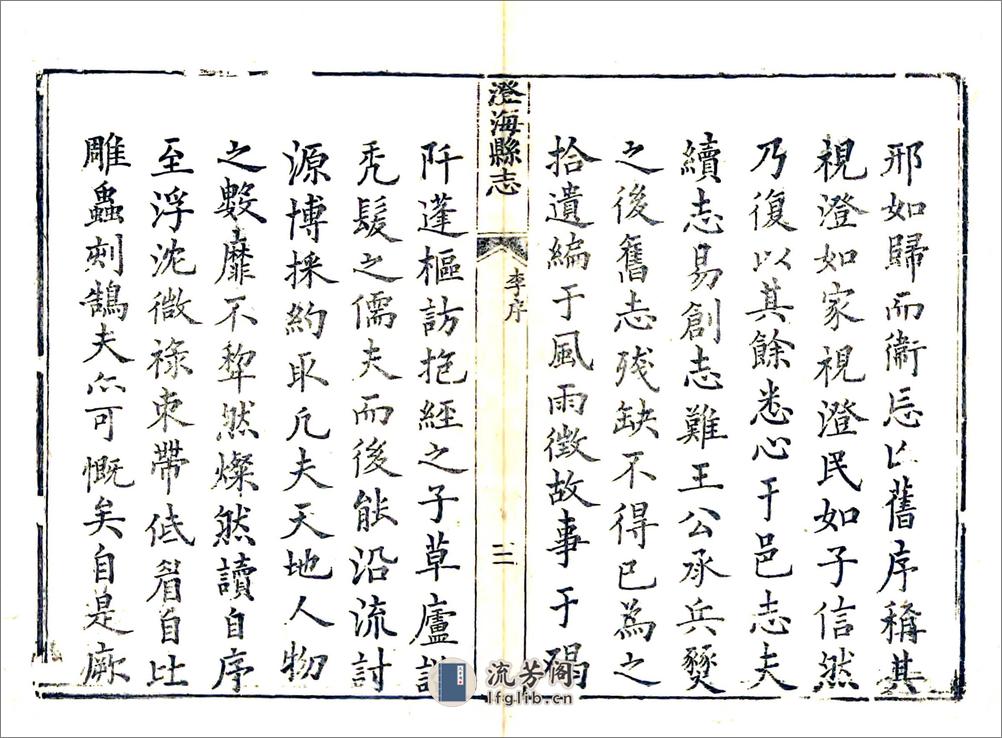 邢如歸而衞忘亾舊序稱其
視澄如家視澄民如子信然
乃復以其餘悉心于邑志夫
續志易創志難王公承兵燹
之後舊志残缺不得已為之
拾遺編于風雨徵故事于
澄海縣志
李序
二
阡蓬樞訪抱經之子草廬
禿髮之儒夫而後能沿流討
源博採約取凢夫天地人物
之數靡不犂然燦然讀自序
至浮沈微祿束帶低眉自比
雕蟲刻鵠夫亦可慨矣自是厥
流芳阁
lfglib.cn